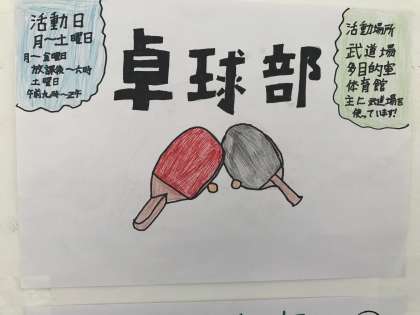 活動日
月〜土曜日
月〜金曜日
放課後〜六時
土曜日
午前九時〜正午
卓球部
活動場所
武道場
多目的室
体育館
主に武道場を
使っています!